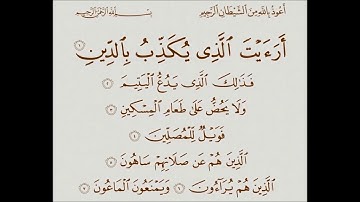 أَعُوذُ بِاللَّهِ مِنَ الشَّيْطَانِ الرَّجِيمِ بِسْمِ اللَّهِ الرَّحْمَٰنِ الرَّحِيمِ
أَرَءَيْتَ الَّذِي يُكَذِّبُ بِالدِّينِ ١
فَذَٰلِكَ الَّذِي يَدُعُّ الْيَتِيمَ ٢
وَلَا يَحُضُّ عَلَىٰ طَعَامِ الْمِسْكِينِ ٣
فَوَيْلٌ لِّلْمُصَلِّينَ ٤
الَّذِينَ هُمْ عَن صَلَاتِهِمْ سَاهُونَ ٥
الَّذِينَ هُمْ يُرَآءُونَ ٦ وَيَمْنَعُونَ الْمَاعُونَ ٧